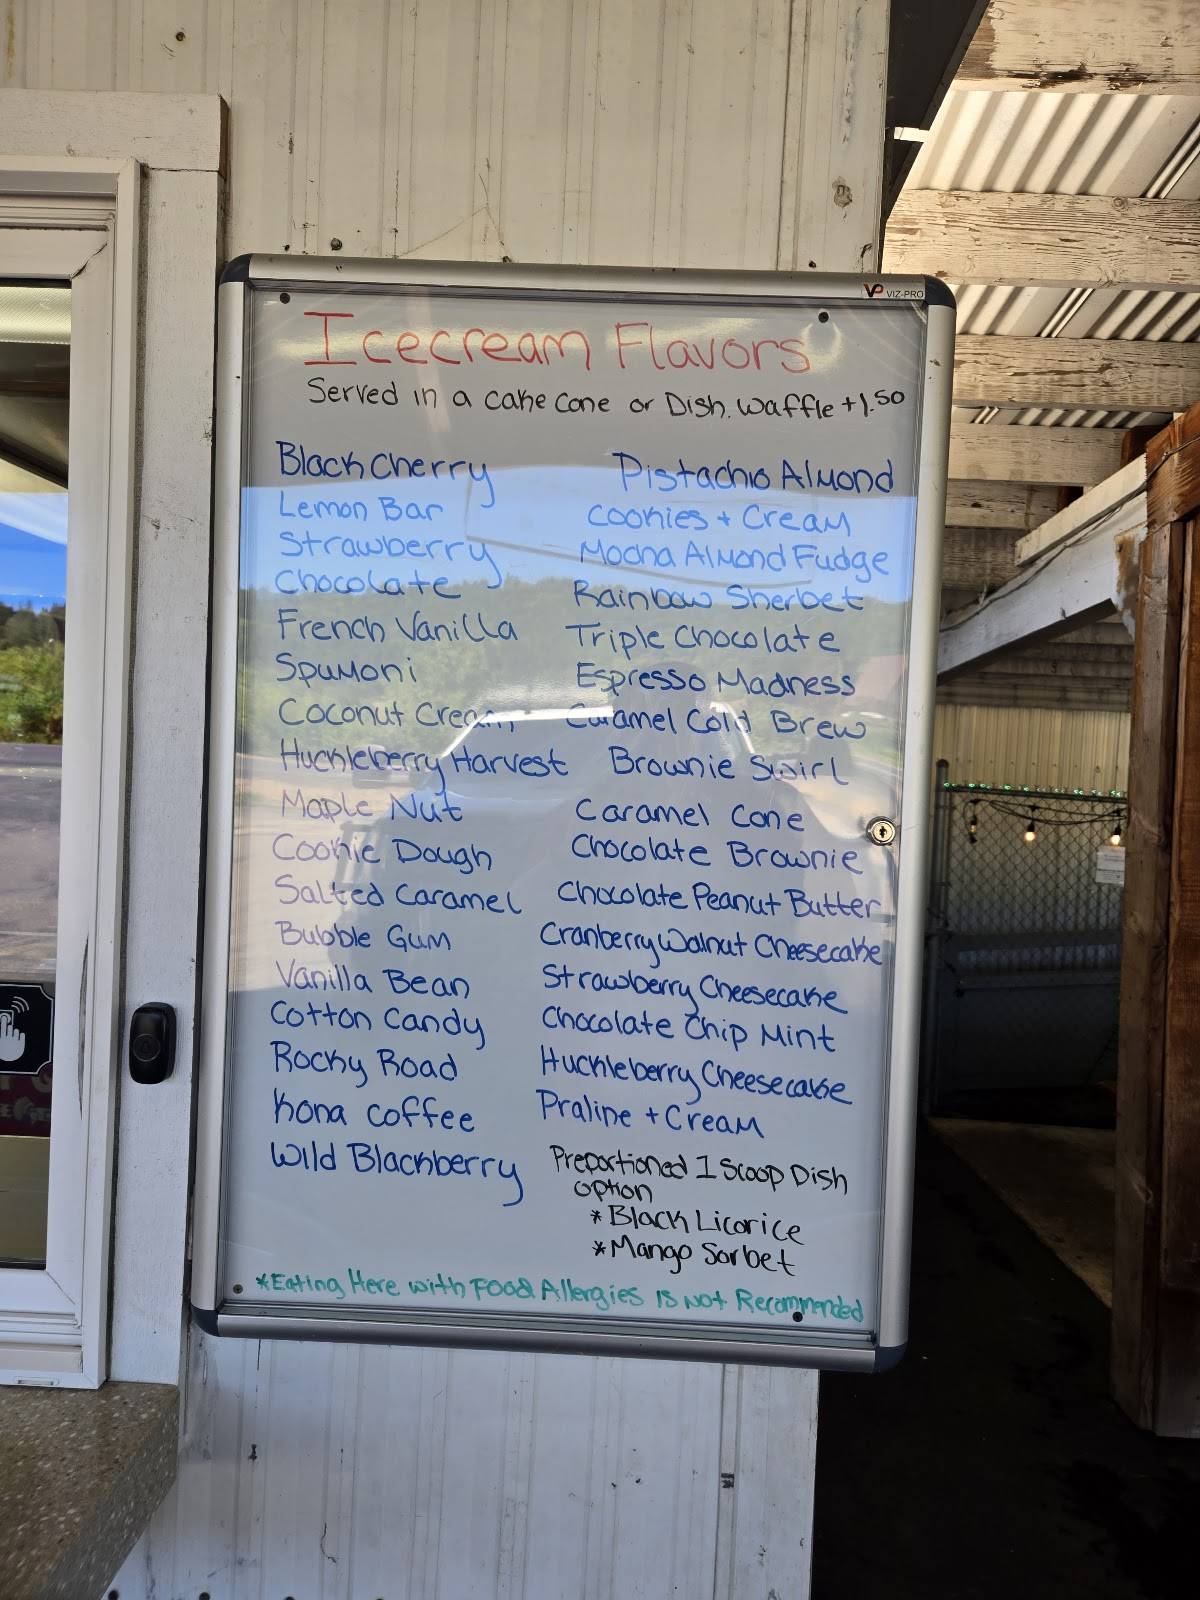 VP VIZ-PRO
Icecream Flavors
Served in a cake cone or Dish. waffle +1.50
Black Cherry
Lemon Bar
Strawberry
Chocolate
French Vanilla
Spumoni
Coconut Cream
Huckleberry Harvest
Maple Nut
Cookie Dough
Salted Caramel
Bubble Gum
Vanilla Bean
Cotton Candy
Rocky Road
Kona Coffee
Wild Blackberry
Pistachio Almond
Cookies + Cream
Mocha Almond Fudge
Rainbow Sherbet
Triple Chocolate
Espresso Madness
Caramel Cold Brew
Brownie Swirl
Caramel Cone
Chocolate Brownie
Chocolate Peanut Butter
Cranberry Walnut Cheesecake
Strawberry Cheesecake
Chocolate Chip Mint
Huckleberry Cheesecake
Praline + Cream
Preportioned 1 Scoop Dish
option
*Black Licorice
*Mango Sorbet
*Eating Here with Food Allergies is Not Recommended